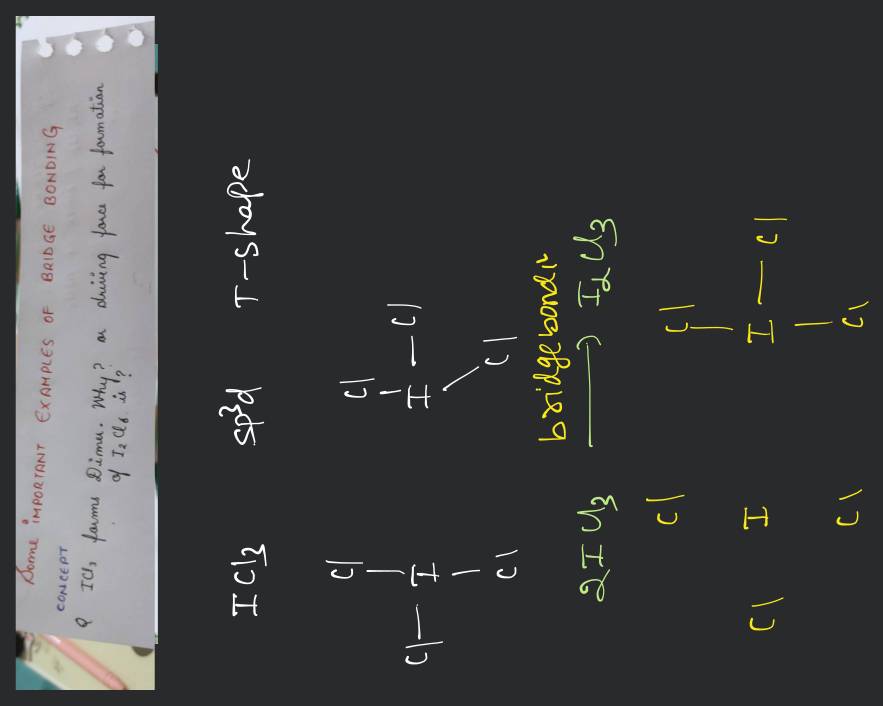 Some IMPORTANT EXAMPLES OF BRIDGE BONDING
CONCEPT
Q ICl₃ forms Dimer. Why? or driving force for formation
of I₂Cl₆ is?
ICl₃ sp³d T-shape
Cl Cl
Cl — I I — Cl
Cl Cl
bridgebondi
2ICl₃ → I₂Cl₃
Cl Cl
Cl I I — Cl
Cl Cl